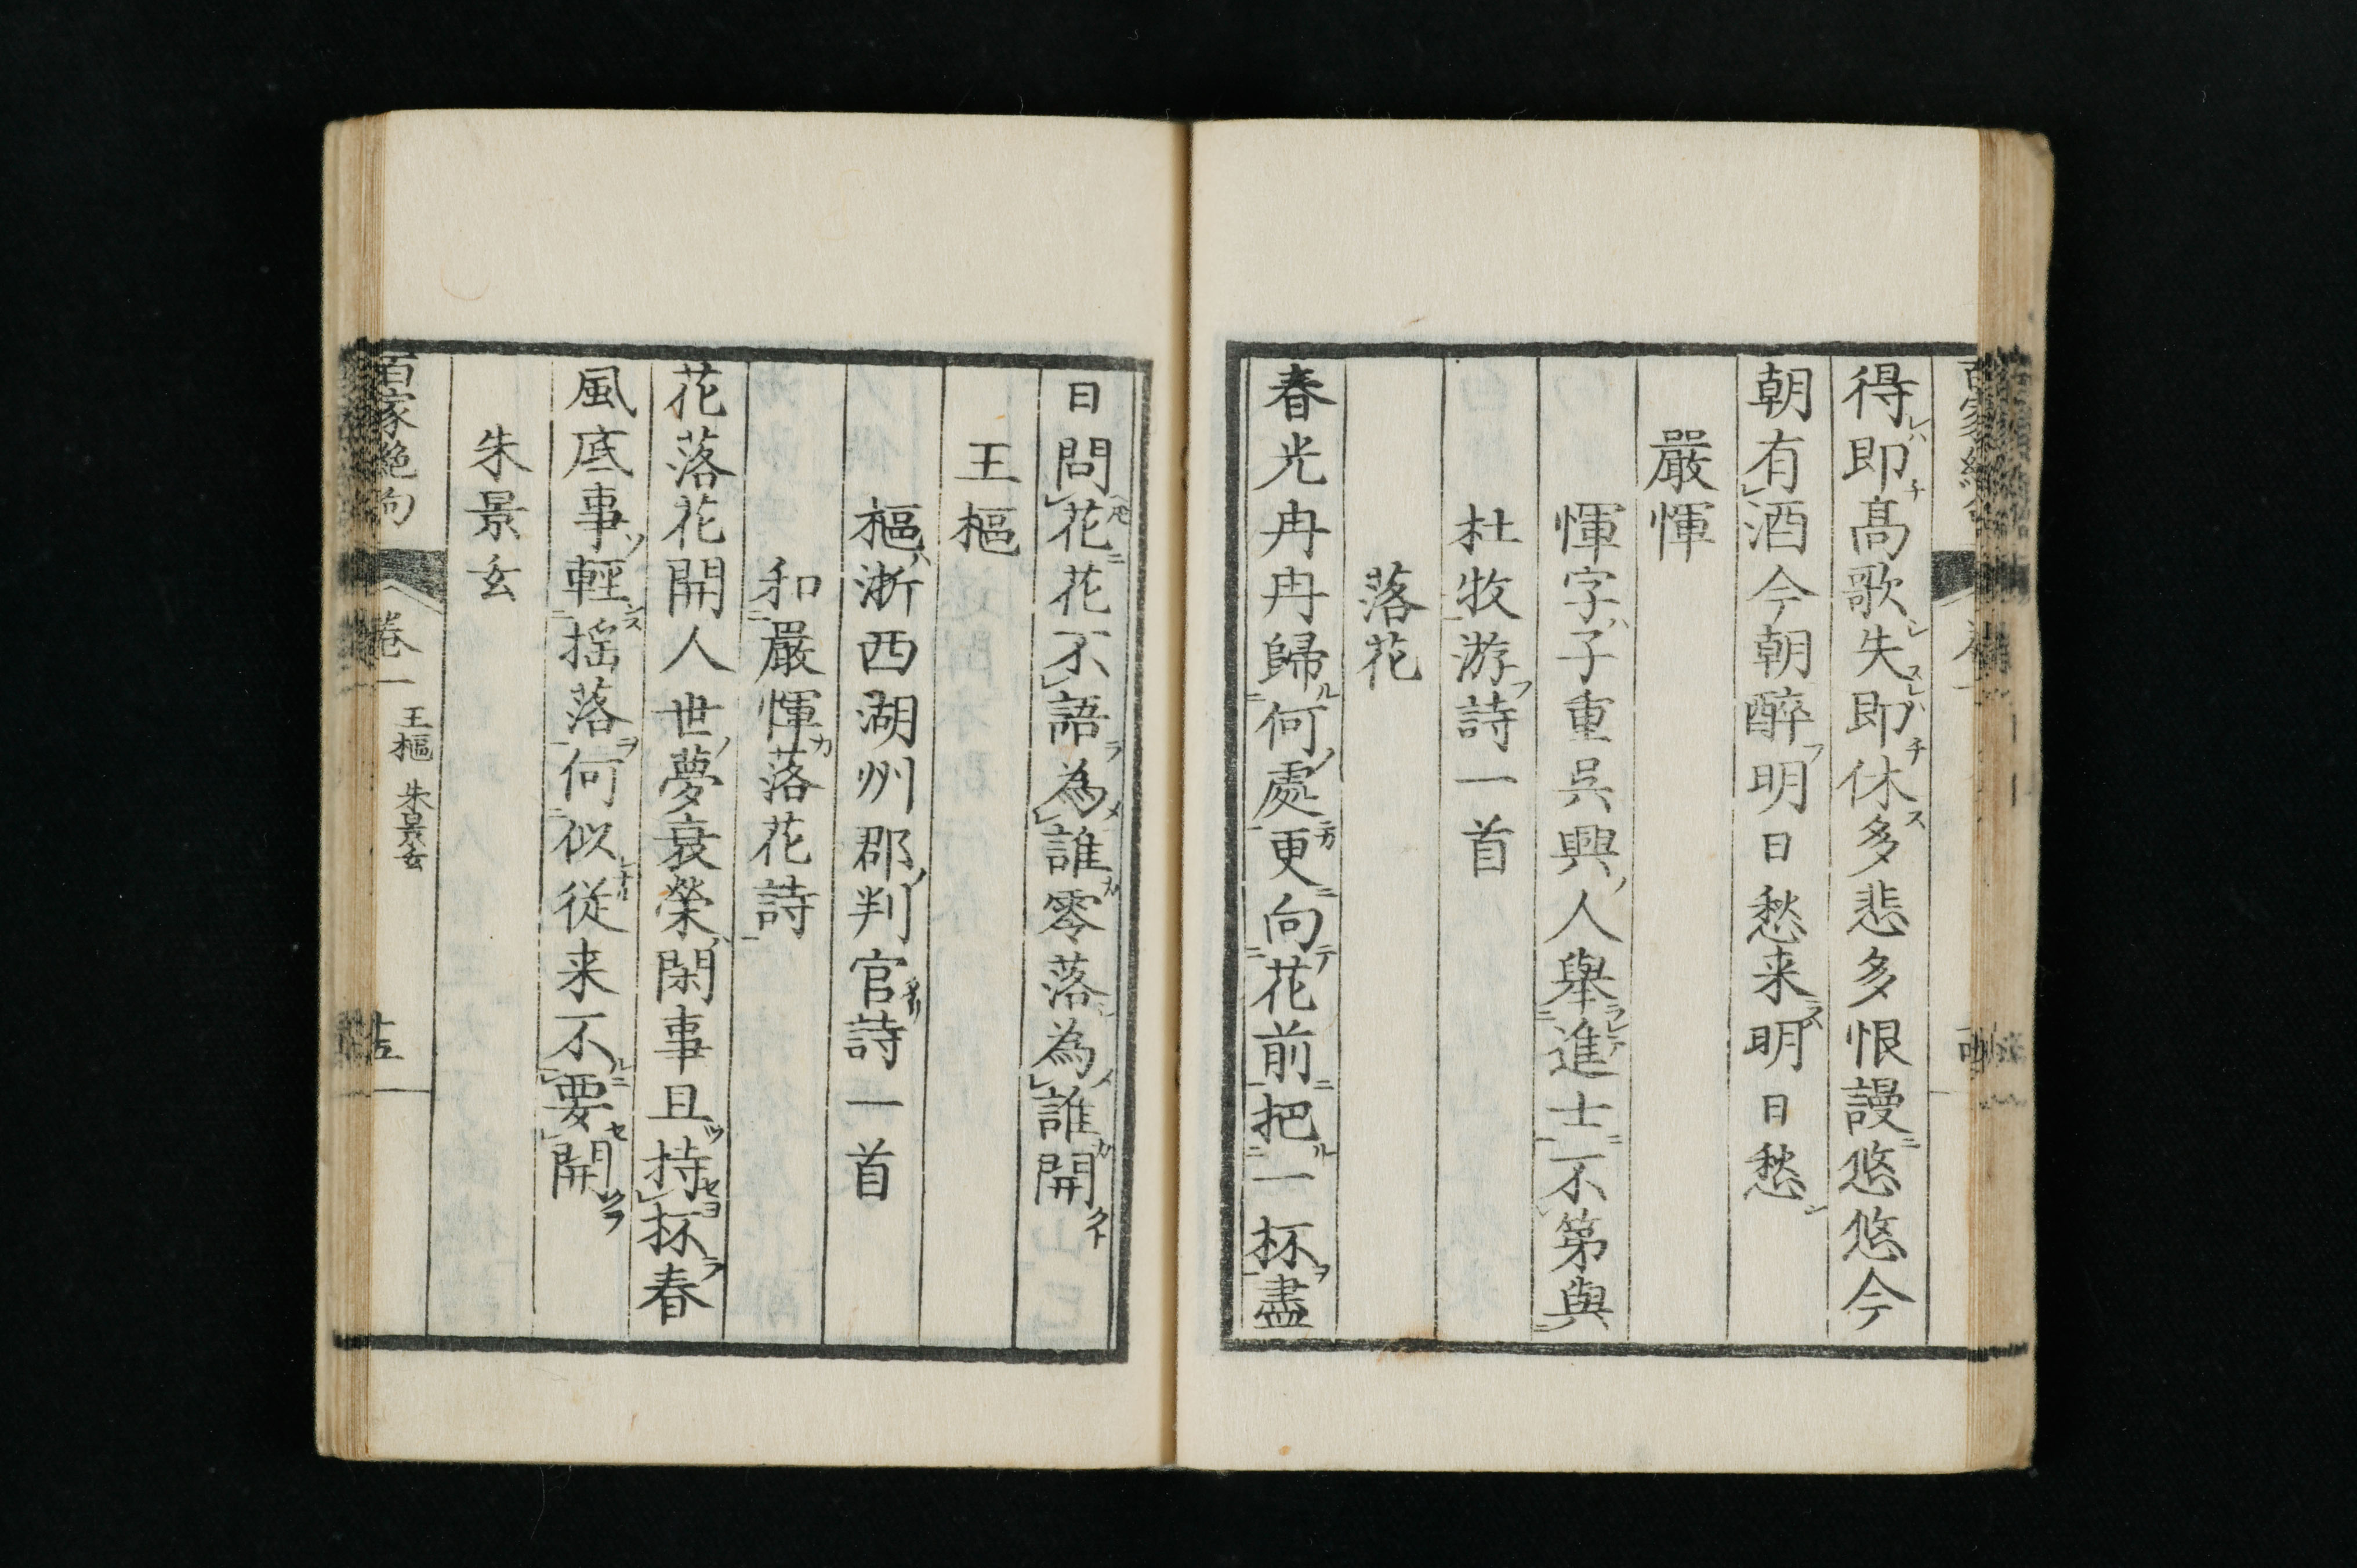 得即高歌失即休多悲多恨謾悠悠今
朝有酒今朝醉明日愁来明日愁
嚴惲
惲字子重呉興人舉進士不第與
杜牧游詩一首
落花
春光冉冉歸何處更向花前把一杯盡
日問花花不語為誰零落為誰開
王樞
樞浙西湖州郡判官詩一首
和嚴惲落花詩
花落花開人世夢衰榮閑事且持杯春
風底事輕揺落何似従来不要開
朱景玄
百家絶句
卷一
王樞 朱景玄